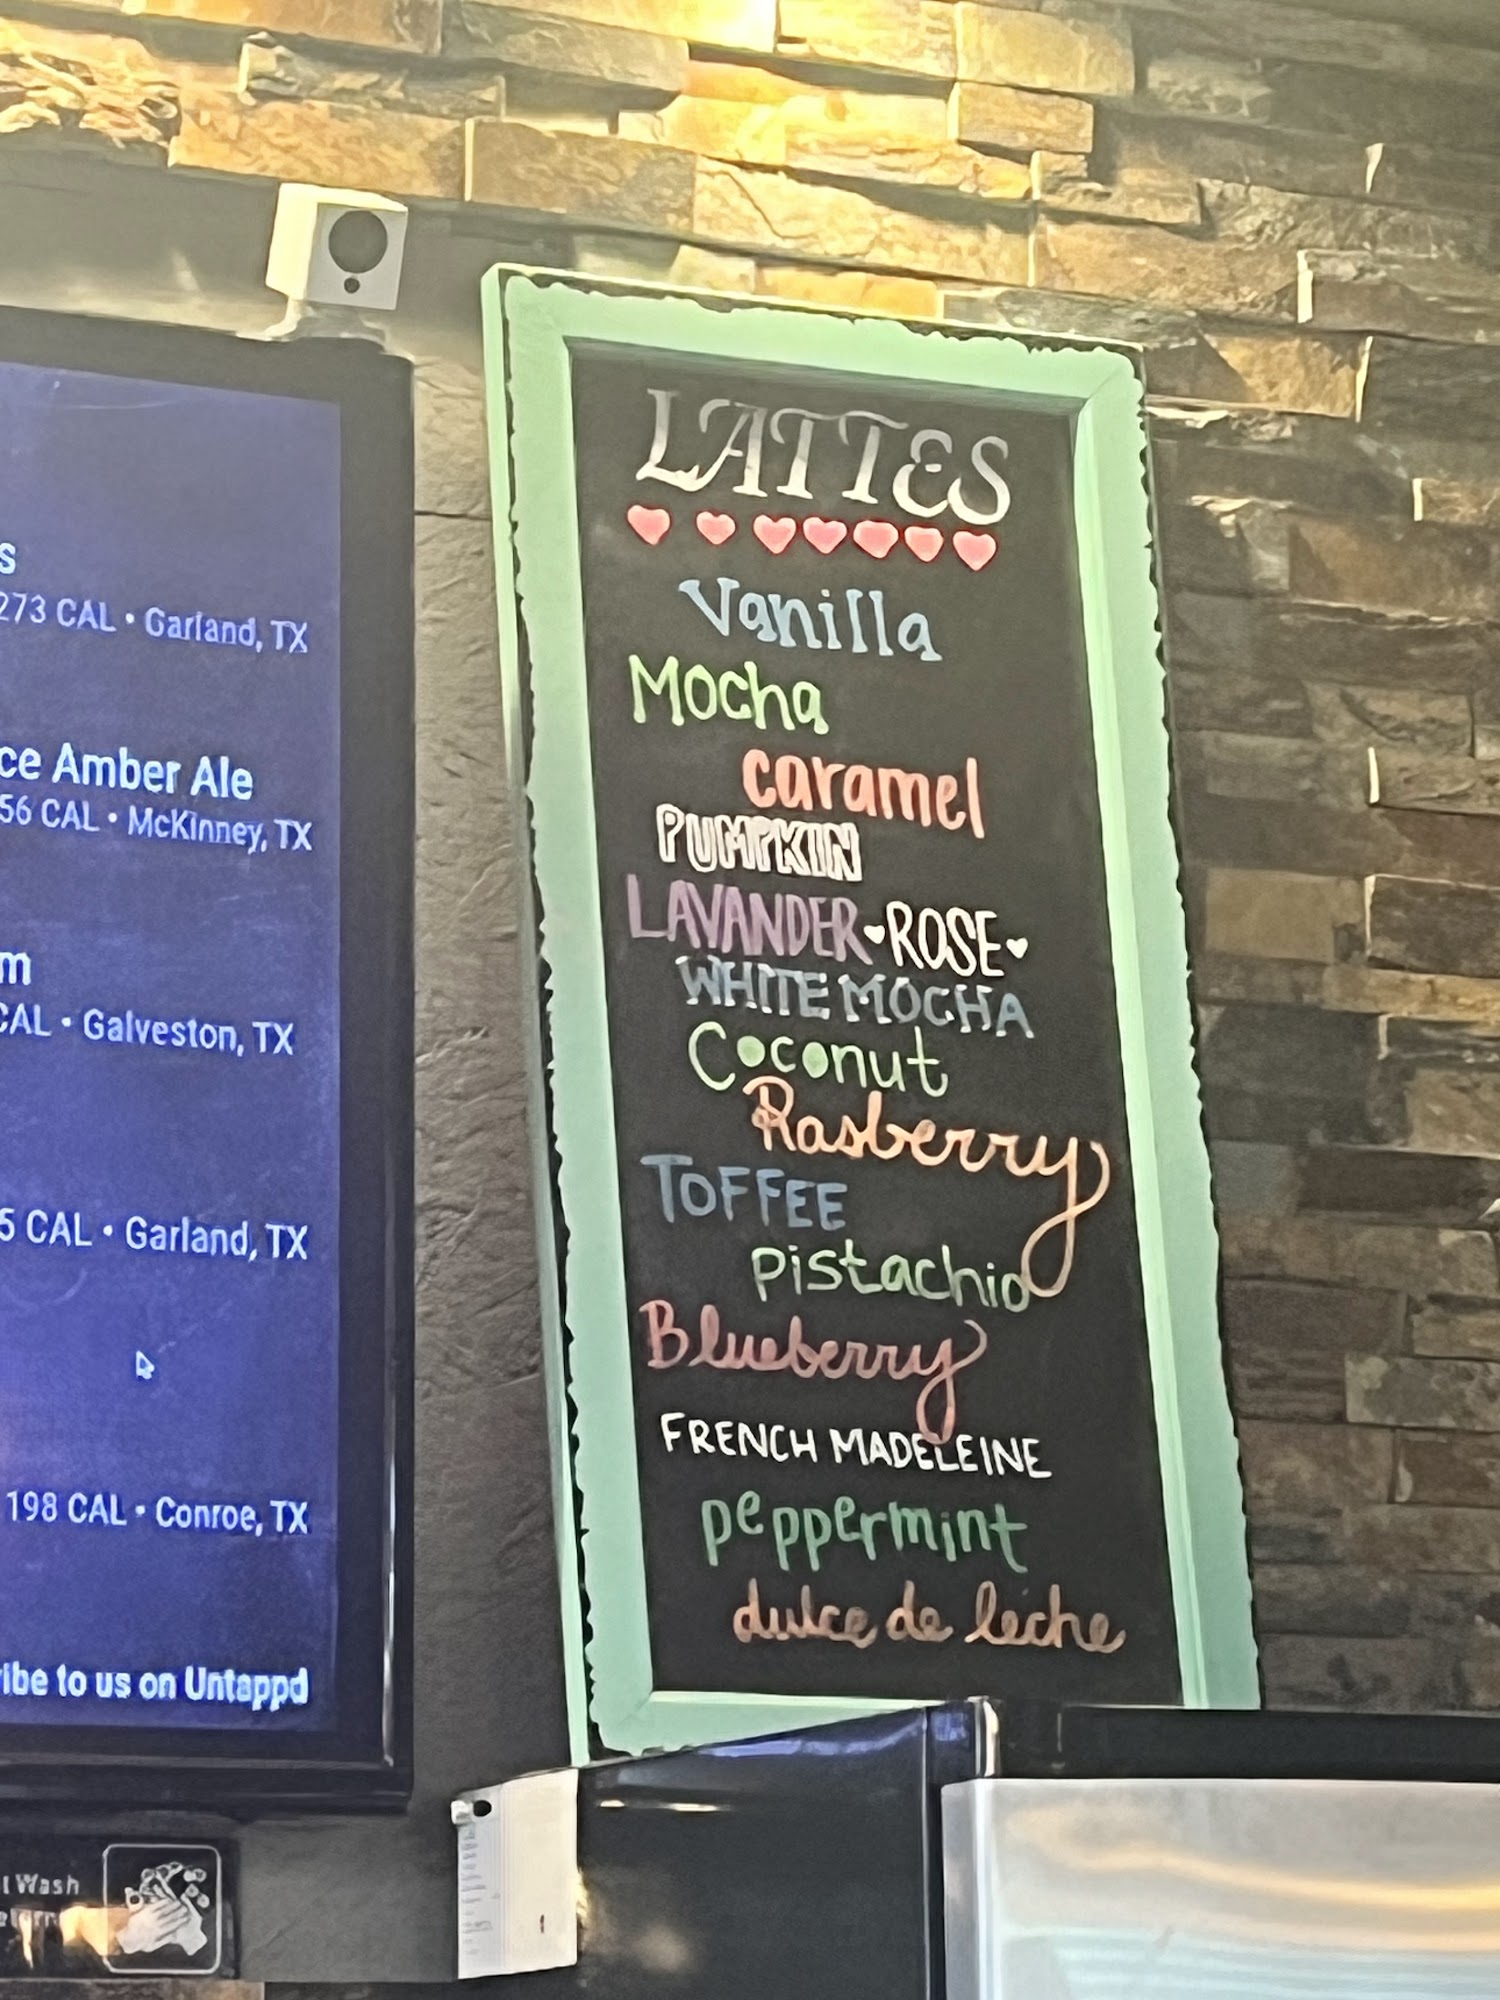 s
273 CAL • Garland, TX
ce Amber Ale
56 CAL • McKinney, TX
m
CAL • Galveston, TX
5 CAL • Garland, TX
198 CAL • Conroe, TX
ibe to us on Untappd
t Wash
LATTES
Vanilla
Mocha
caramel
PUMPKIN
LAVANDER ROSE
WHITE MOCHA
Coconut
Rasberry
TOFFEE
pistachio
Blueberry
FRENCH MADELEINE
peppermint
dulce de leche